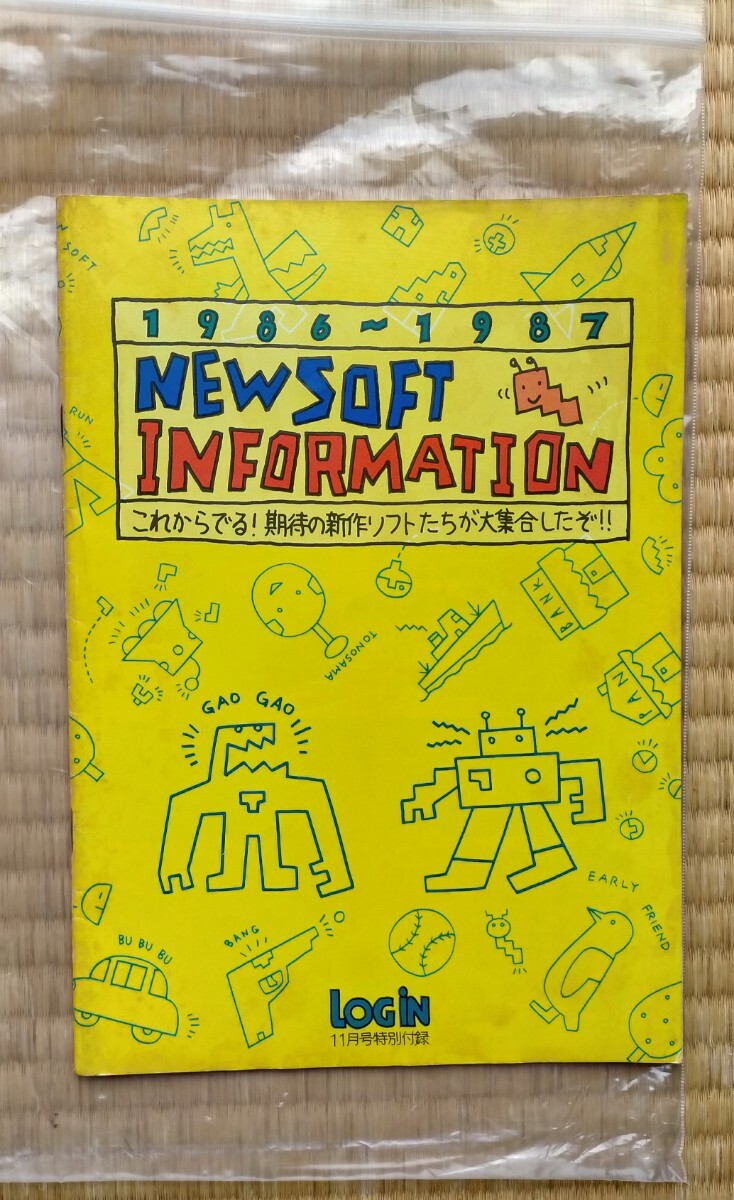 N SOFT
1986〜1987
NEWSOFT
INFORMATION
これからでる！期待の新作ソフトたちが大集合したぞ!!
RUN
TONOSAMA
BANK
PAN
GAO GAO
EARLY
FRIEND
BU BU BU
BANG
LOGiN
11月号特別付録